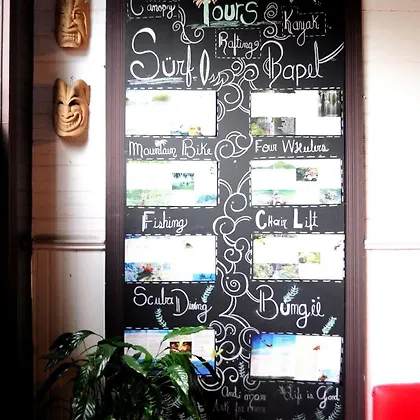 Canopy Tours Kayak
Rafting
Surf Rapel
Mountain Bike Four Wheelers
Fishing Chair Lift
Scuba Diving Bungii
And more Life is Good
Ask for more